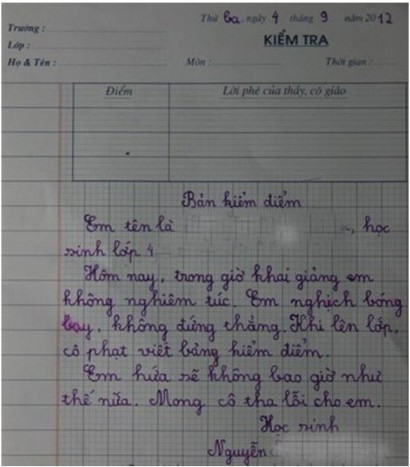 Thứ ba ngày 4 tháng 9 năm 2012
Trường :
Lớp :
KIỂM TRA
Họ & Tên :
Môn :
Thời gian :
Điểm
Lời phê của thầy, cô giáo
Bản kiểm điểm
Em tên là , học
sinh lớp 4
Hôm nay, trong giờ khai giảng em
không nghiêm túc. Em nghịch bóng
bay, không đứng thẳng. Khi lên lớp,
cô phạt viết bảng kiểm điểm.
Em hứa sẽ không bao giờ như
thế nữa. Mong cô tha lỗi cho em.
Học sinh
Nguyễn